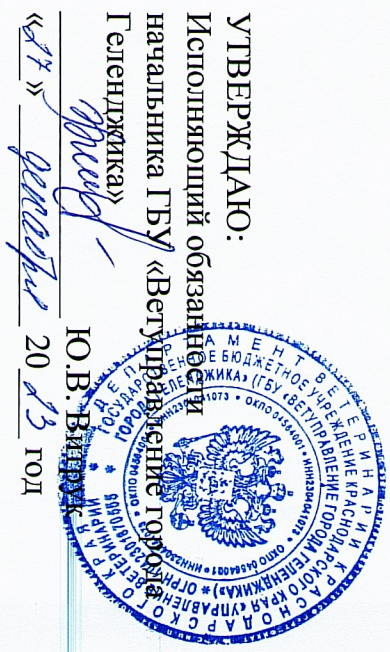 УТВЕРЖДАЮ:
Исполняющий обязанности
начальника ГБУ «Ветуправление города
Геленджика»
Ю.В. Витрук
«27» 2023 год
ДЕПАРТАМЕНТ ВЕТЕРИНАРИИ КРАСНОДАРСКОГО КРАЯ
ГОСУДАРСТВЕННОЕ БЮДЖЕТНОЕ УЧРЕЖДЕНИЕ КРАСНОДАРСКОГО КРАЯ «УПРАВЛЕНИЕ ВЕТЕРИНАРИИ
ГОРОДА ГЕЛЕНДЖИКА» (ГБУ «ВЕТУПРАВЛЕНИЕ ГОРОДА ГЕЛЕНДЖИКА»)